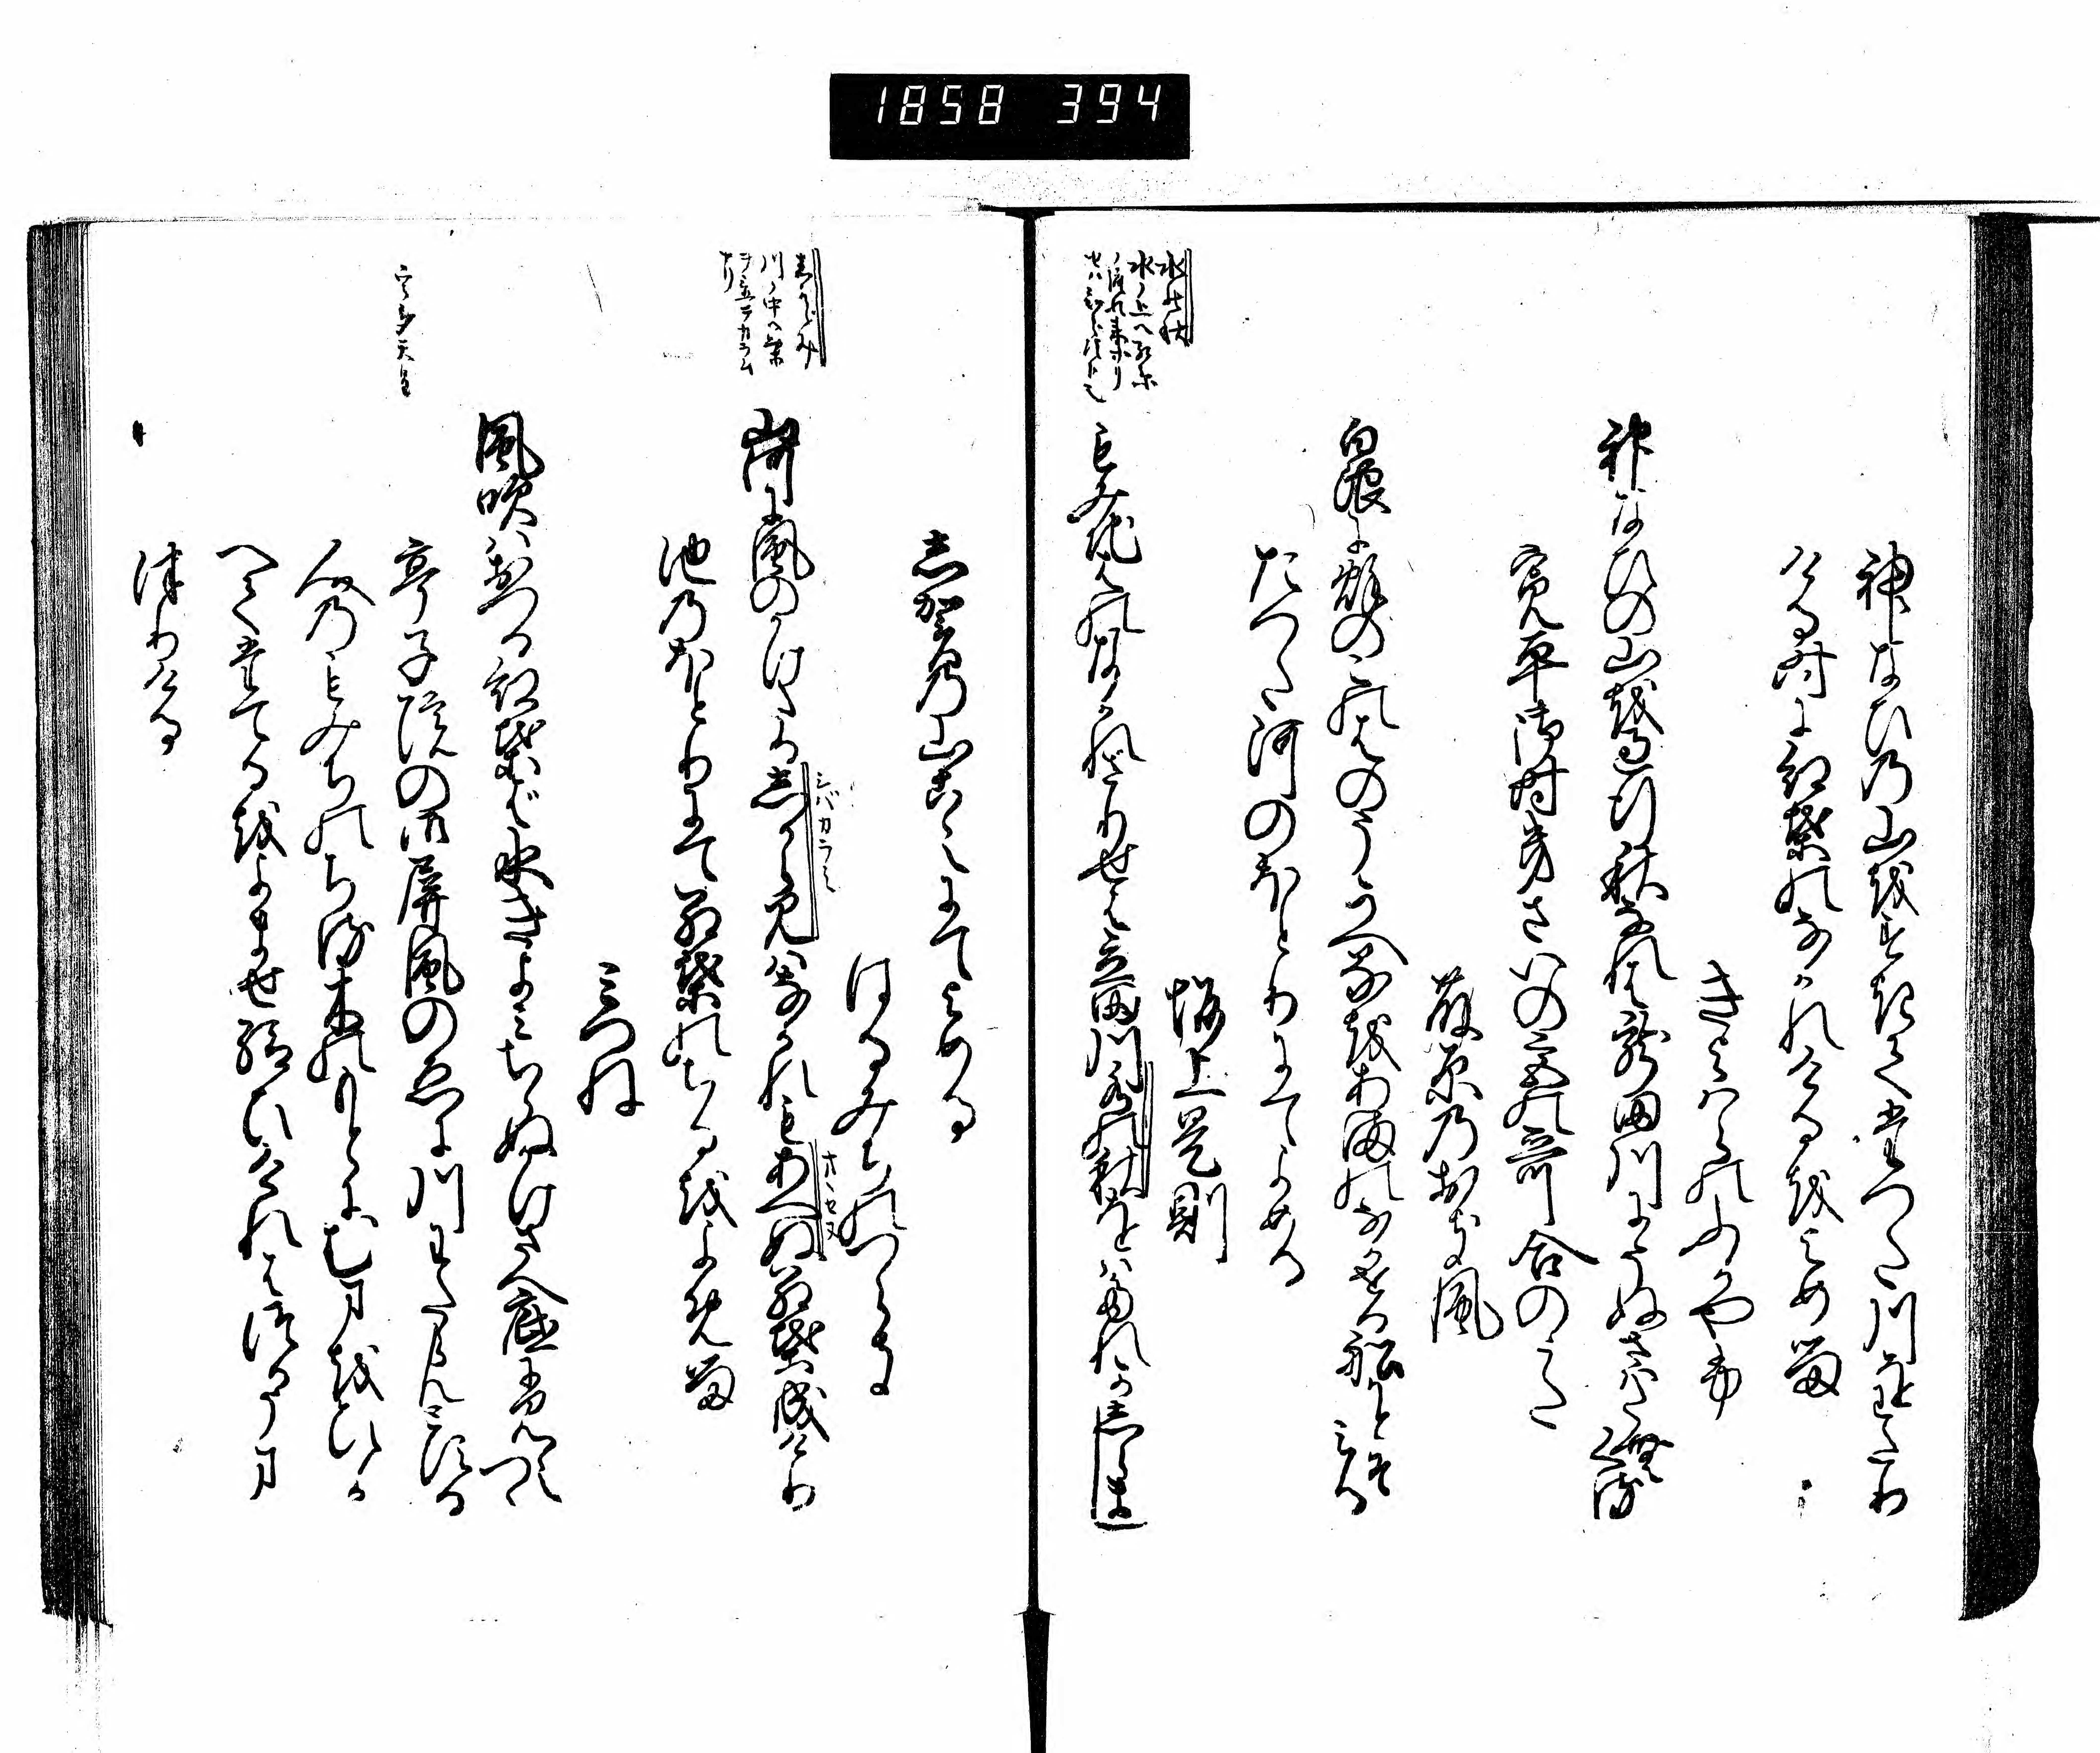 1858 394
神なひの山をすきてたつた川をわたり
ける時に紅葉のなかれけるをよめる
きよはらのふかやふ
神なひの山を過行秋なれは龍田川にそぬさはたむくる
寛平御時きさいの宮の哥合のうた
藤原のおき風
白浪に秋のこのはのうかへるをあまのなかせる船かとそみる
たつた河のほとりにてよめる
坂上是則
水の秋
もみち葉のなかれさりせは立田川水の秋をはたれかしらまし
志賀の山こえにてよめる
はるみちのつらき
しからみ
山河に風のかけたるしからみはなかれもあへぬ紅葉成けり
シバカラミ
池のほとりにて紅葉のちるをよめる
みつね
風吹はおつる紅葉は水きよみちらぬかけさへ底に見えつゝ
宇多天皇
亭子院の御屏風のゑに川わたらんとする
人のもみちのちる木のもとにむまをひか
へてたてるをよませ給ひけれはつかうま
つりける